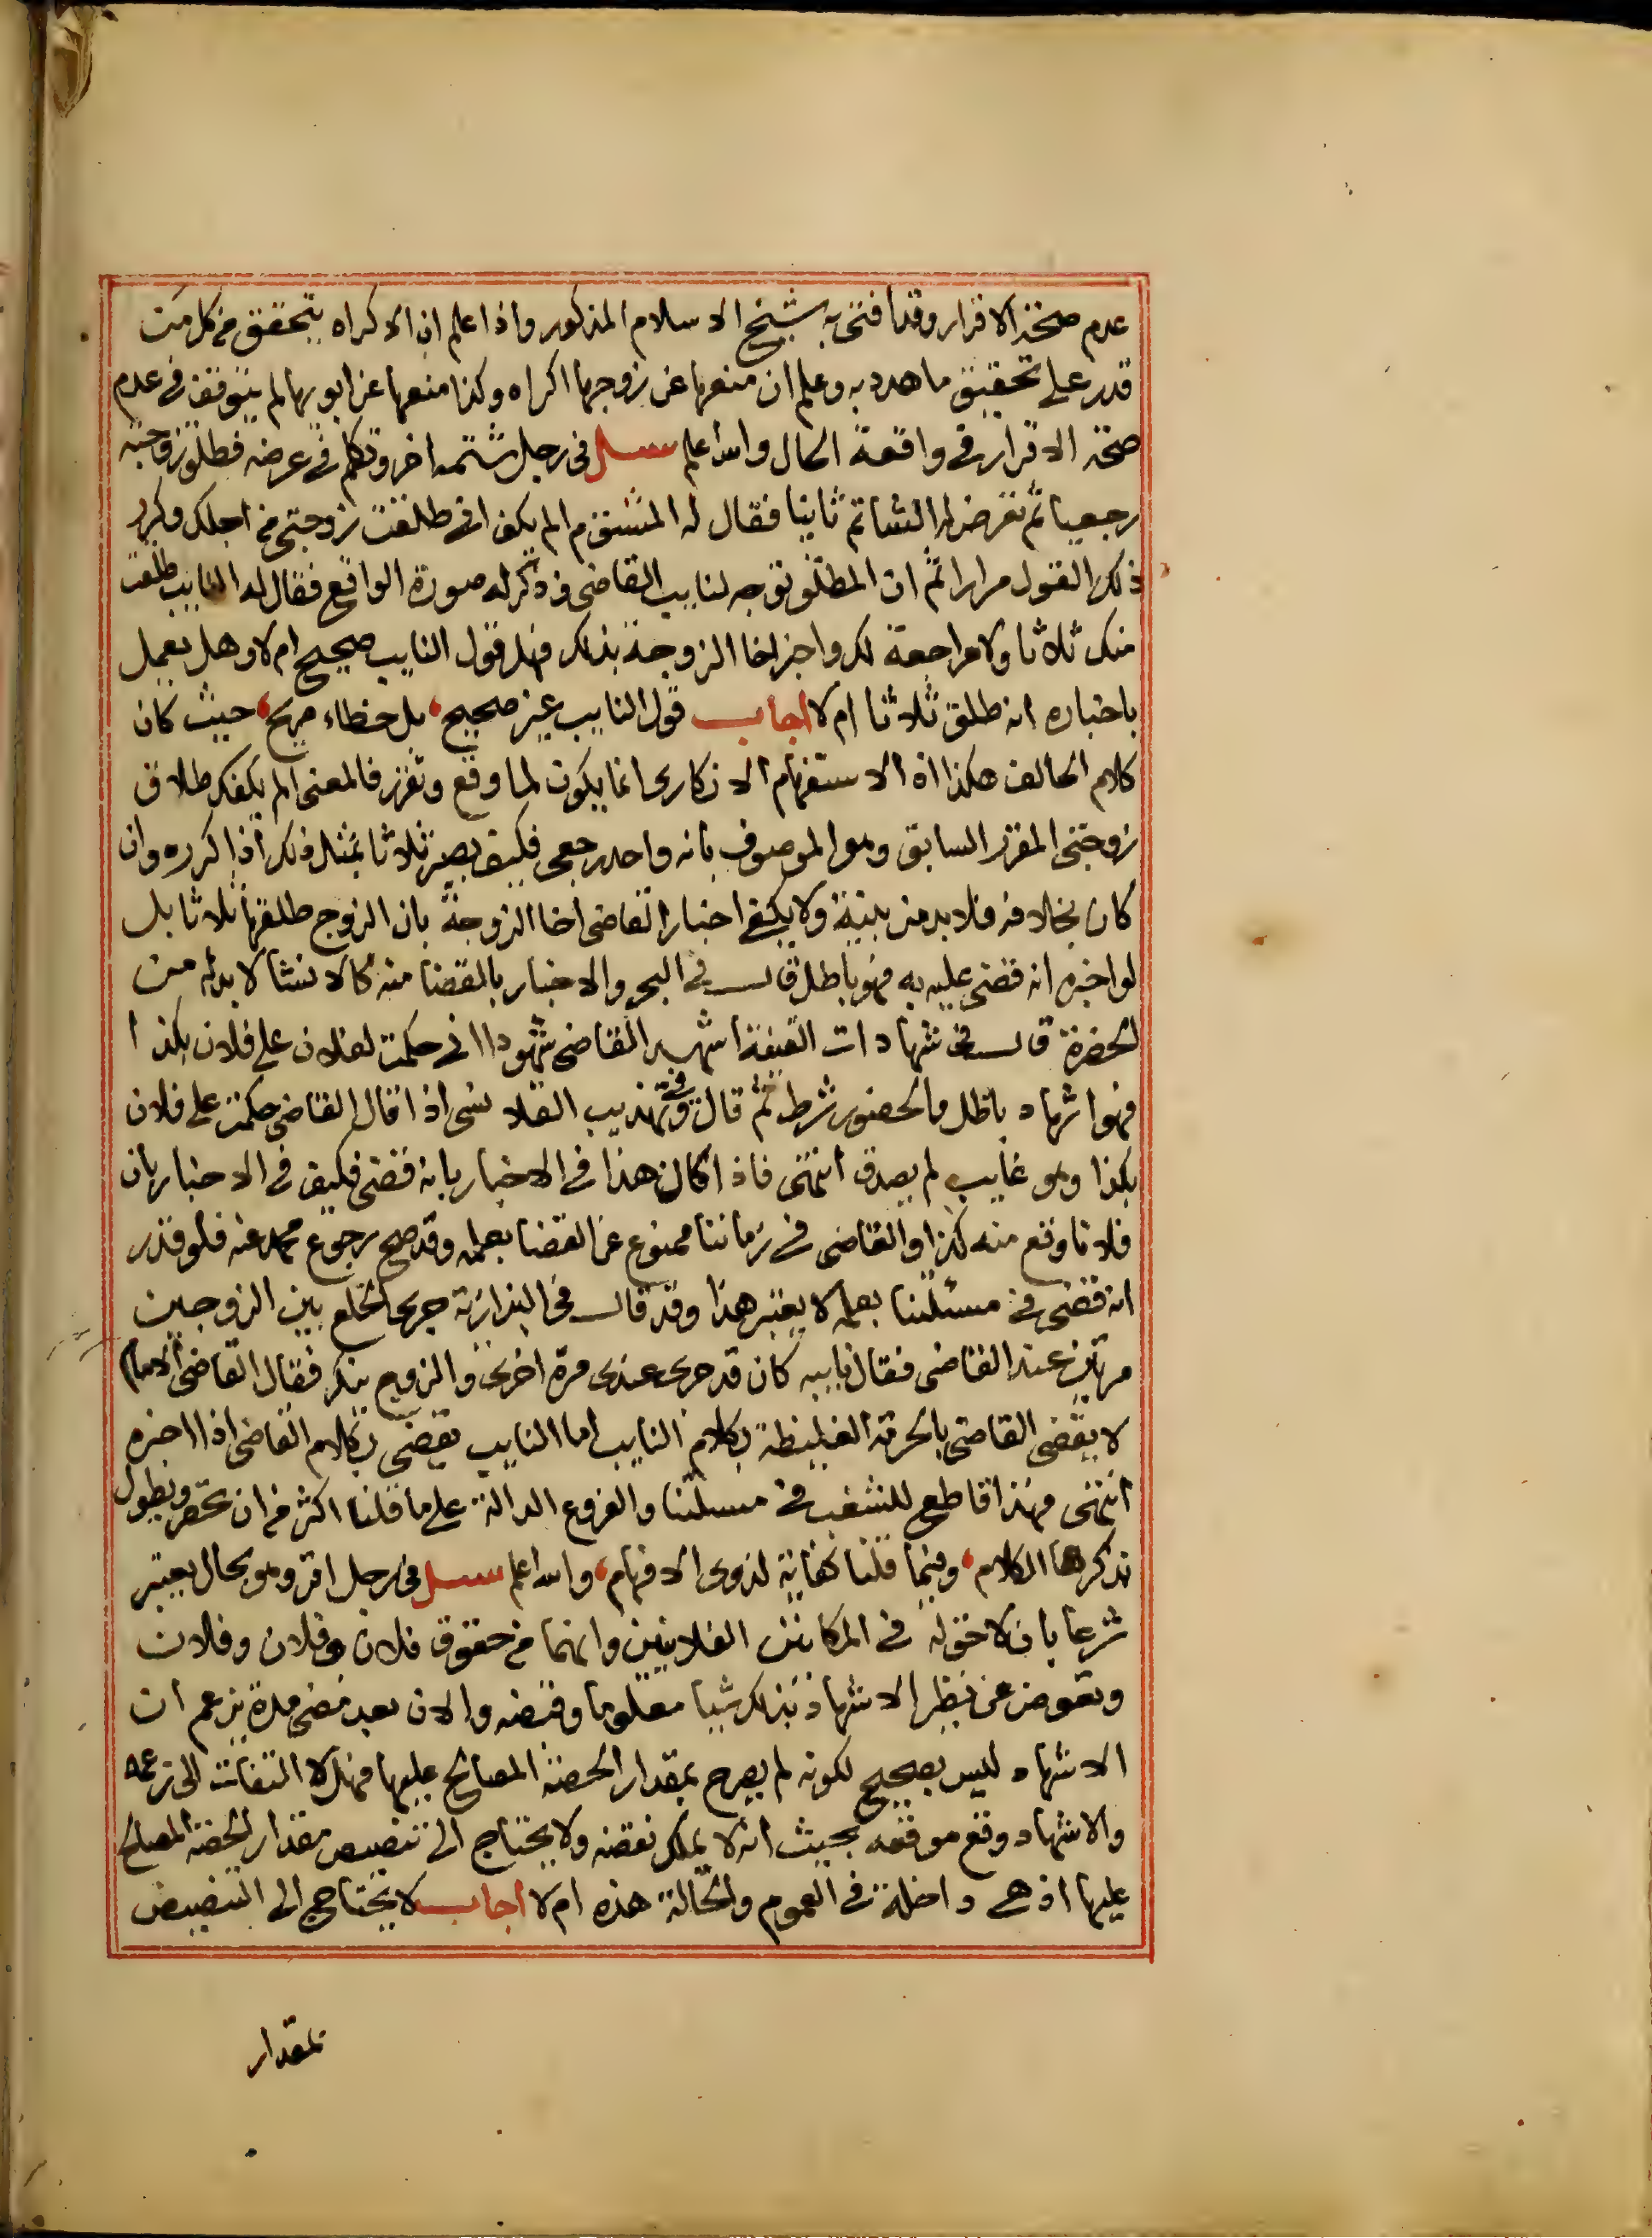 عدم صحة الاقرار وقد افتى به شيخ الاسلام المذكور واذا علم ان الاكراه يتحقق من كل من
قدر على تحقيق ما هدد به وعلم ان منعها عن زوجها اكراه وكذا منعها عن ابويها لم يتوقف في عدم
صحة الاقرار في واقعة الحال والله اعلم سئل في رجل شتمه اخر وتكلم في عرضه فطلق زوجته
رجعيا ثم تعرض له الشاتم ثانيا فقال له المشتوم الم يكف اني طلقت زوجتي من اجلك وكرر
ذلك القول مرارا ثم ان المطلق توجه لنايب القاضي وذكر له صورة الواقع فقال له النايب طلقت
منك ثلاثا ولا مراجعة لك واخبر اخا الزوجة بذلك فهل قول النايب صحيح ام لا وهل يعمل
باخباره انه طلق ثلاثا ام لا اجاب قول النايب غير صحيح، بل خطاء صريح، حيث كان
كلام الحالف هكذا اذ الاستفهام الانكاري انما يكون لما وقع وتقرر فالمعنى الم يكفك طلاق
زوجتي المقرر السابق وهو الموصوف بانه واحد رجعي فكيف يصير ثلاثا بمثل ذلك اذا كرره وان
كان بخلافه فلا بد من بينة ولا يكفي اخبار القاضي اخا الزوجة بان الزوج طلقها ثلاثا بل
لو اخبره انه قضى عليه به فهو باطل قال في البحر والاخبار بالقضا منه كالانشا لا بد له من
الحضرة قال في شهادات القنية اشهد القاضي شهودا اني حكمت لفلان على فلان بكذا
فهو اشهاد باطل والحضور شرط ثم قال وفي تهذيب القلانسي اذا قال القاضي حكمت على فلان
بكذا وهو غايب لم يصدق انتهى فاذا كان هذا في الاخبار بانه قضى فكيف في الاخبار بان
فلانا وقع منه كذا والقاضي في زماننا ممنوع عن القضا بعلمه وقد صح رجوع محمد عنه فلو قدر
انه قضى في مسئلتنا بعلمه لا يعتبر هذا وقد قال في البزازية جرى الخلع بين الزوجين
مرتين عند القاضي فقال نايبه كان قد جرى عندي مرة اخرى والزوج ينكر فقال القاضي الامام
لا يقضي القاضي بالحرمة الغليظة بكلام النايب اما النايب يقضي بكلام القاضي اذا اخبره
انتهى فهذا قاطع للشغب في مسئلتنا والفروع الدالة على ما قلنا اكثر من ان تحصر ويطول
بذكرها الكلام، وفيما قلنا كفاية لذوي الافهام، والله اعلم سئل في رجل اقر وهو بحال يعتبر
شرعا بان لا حق له في المكانين الفلانيين وانهما من حقوق فلان وفلان وفلان
وتعوض عن نظير الاشهاد بذلك شيا معلوما وقبضه والان بعد مضي مدة يزعم ان
الاشهاد ليس بصحيح لكونه لم يصرح بمقدار الحصة المصالح عليها فهل لا التفات الى زعمه
والاشهاد وقع موقعه بحيث انه لا يملك نقضه ولا يحتاج الى تنصيص مقدار الحصة المصالح
عليها اذ هي داخلة في العموم والحالة هذه ام لا اجاب لا يحتاج الى التنصيص
بمقدار